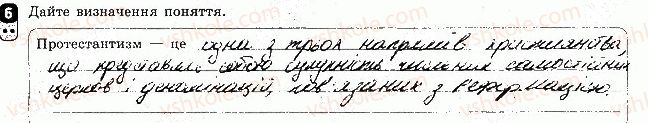 6 Дайте визначення поняття.
Протестантизм — це одна з трьох напрямів християнства,
що представляє собою сукупність численних самостійних
церков і деномінацій, пов'язаних з Реформацією.